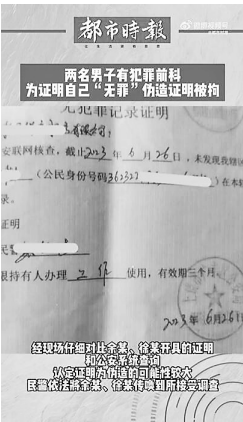 都市时报
两名男子有犯罪前科
为证明自己“无罪”伪造证明被拘
无犯罪记录证明
安联网核查，截止2023年6月26日，未发现我辖
（公民身份号码362322
）在本
录。
证明
民警
限持有人办理 工作 使用，有效期三个月
2023年6月26日
经现场仔细对比余某、徐某开具的证明
和公安系统查询
认定证明为伪造的可能性较大
民警依法将余某、徐某传唤到所接受调查